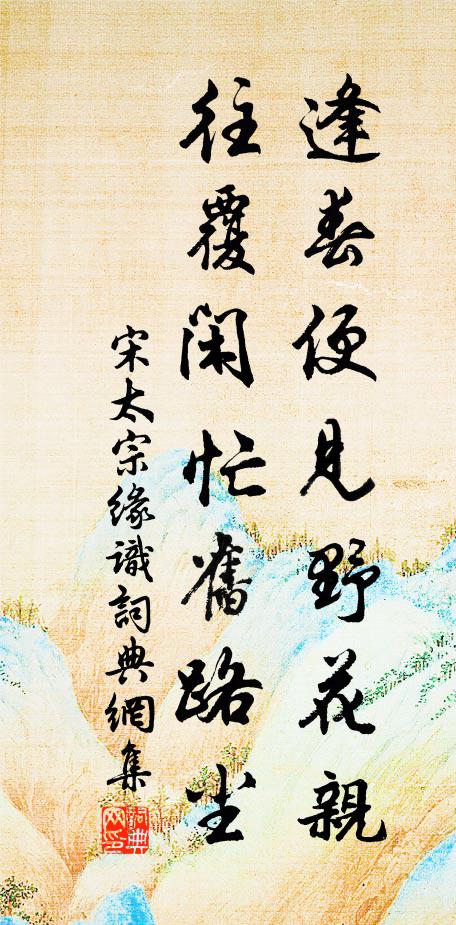 逢春便見野花親
往覆閑忙舊路尘
宋太宗緣識詞典網集
詞典
网印